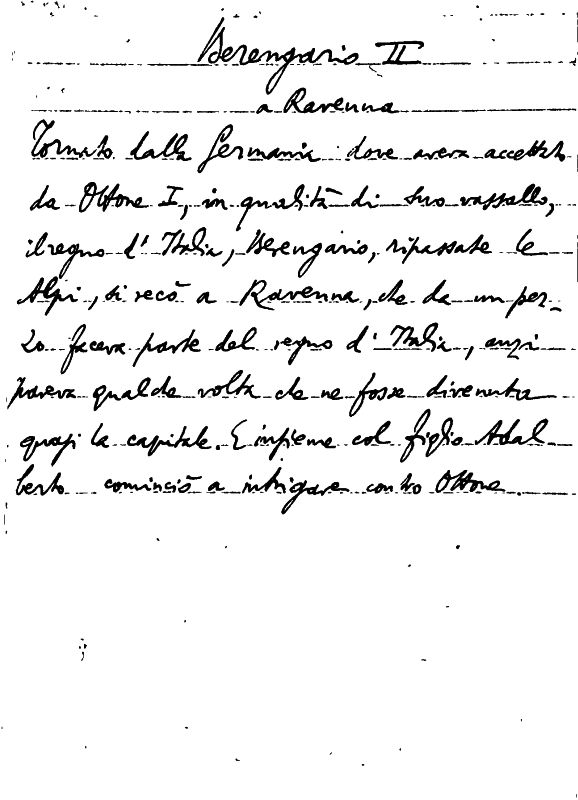 Berengario II
a Ravenna
Tornato dalla Germania dove aveva accettato
da Ottone I, in qualità di suo vassallo,
il regno d'Italia, Berengario, ripassate le
Alpi, si recò a Ravenna, che da un pez-
zo faceva parte del regno d'Italia, anzi
pareva qualche volta che ne fosse divenuta
quasi la capitale. E insieme col figlio Adal
berto cominciò a intrigare contro Ottone.